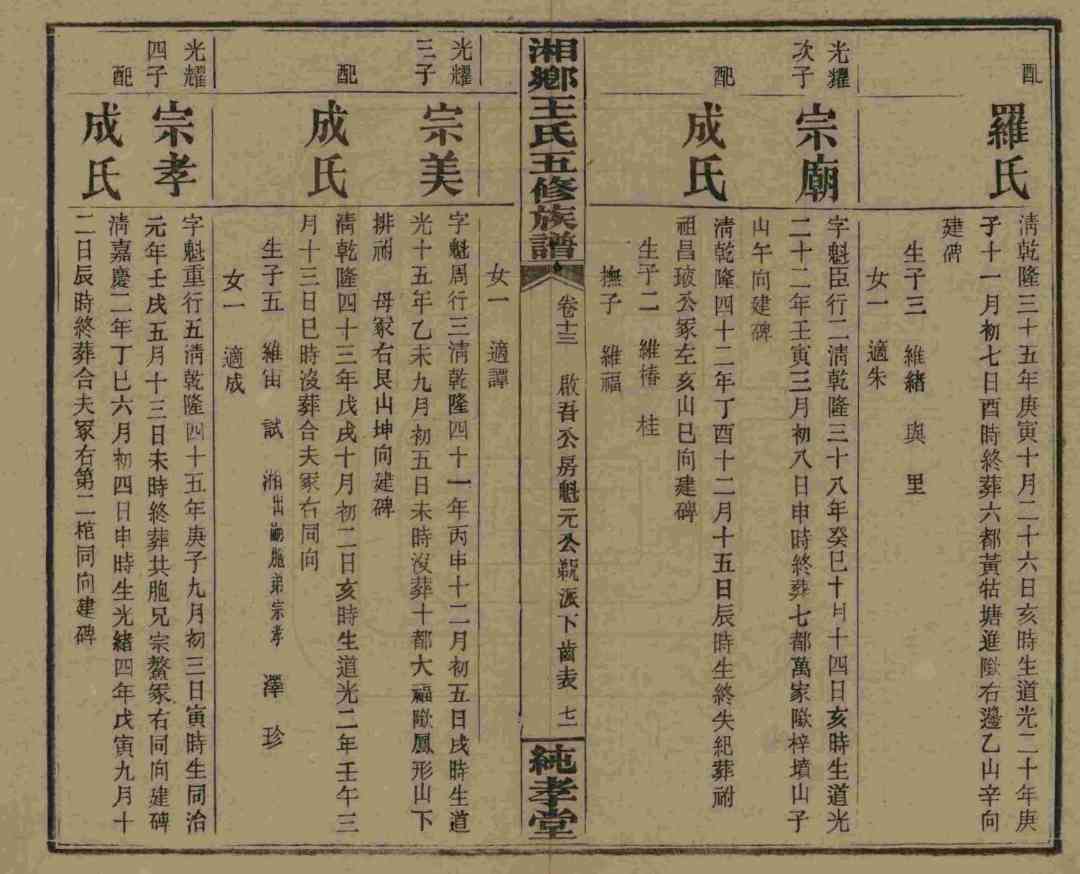 配
羅氏
清乾隆三十五年庚寅十月二十六日亥時生道光二十年庚
子十一月初七日酉時終葬六都黃牯塘進歐右邊乙山辛向
建碑
生子三 維緒 與 里
女一 適朱
光耀
次子
宗廟
字魁臣行二清乾隆三十八年癸巳十月十四日亥時生道光
二十二年壬寅三月初八日申時終葬七都萬家歐梓墳山子
山午向建碑
配
成氏
清乾隆四十二年丁酉十二月十五日辰時生終失紀葬祔
祖昌公冢左亥山巳向建碑
生子二 維椿 桂
撫子 維福
湘鄉王氏五修族譜
卷十三 啟吾公房魁元公派下齒表 七一
純孝堂
女一 適譚
光耀
三子
宗美
字魁周行三清乾隆四十一年丙申十二月初五日戌時生道
光十五年乙未九月初五日未時沒葬十都大福歐鳳形山下
排祔 母冢右艮山坤向建碑
配
成氏
清乾隆四十三年戊戌十月初二日亥時生道光二年壬午三
月十三日巳時沒葬合夫冢右同向
生子五 維宙 試 湘出嗣胞弟宗孝 澤 珍
女一 適成
光耀
四子
宗孝
字魁重行五清乾隆四十五年庚子九月初三日寅時生同治
元年壬戌五月十三日未時終葬共胞兄宗鰲冢右同向建碑
配
成氏
清嘉慶二年丁巳六月初四日申時生光緒四年戊寅九月十
二日辰時終葬合夫冢右第二棺同向建碑